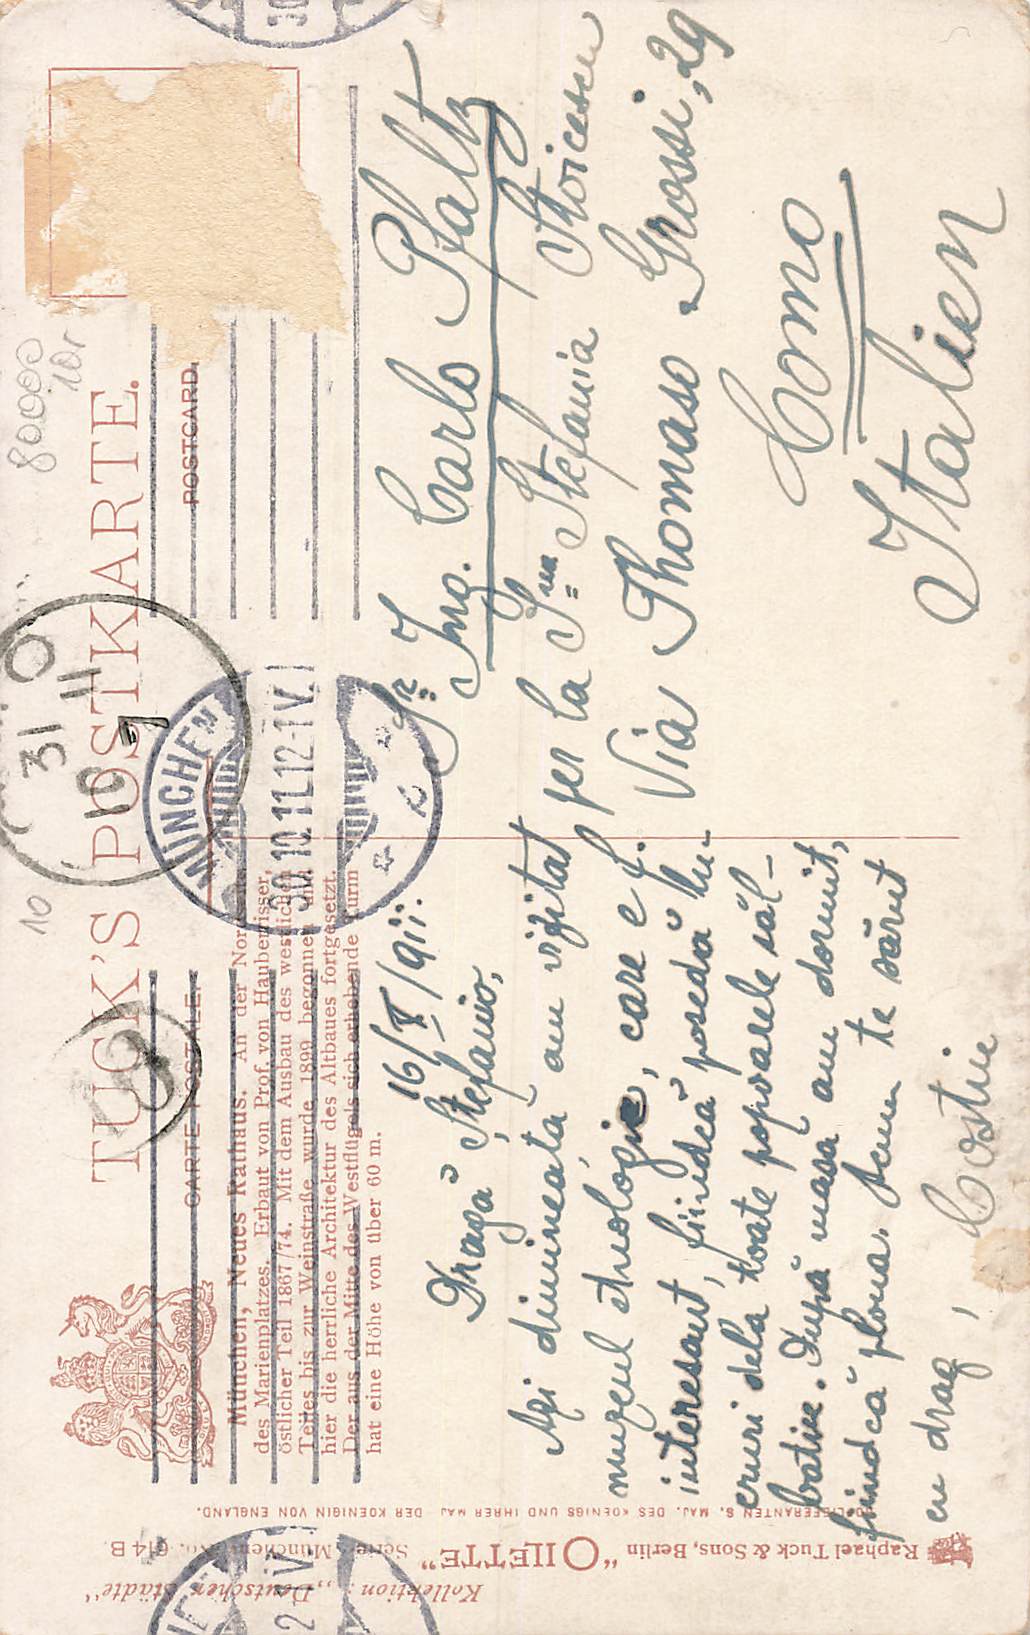 TUCK'S POSTKARTE.
CARTE POSTALE.
POSTCARD.
München, Neues Rathaus. An der Nor
des Marienplatzes. Erbaut von Prof. von Hauberrisser,
östlicher Teil 1867/74. Mit dem Ausbau des westlichen
Teiles bis zur Weinstraße wurde 1899 begonnen und
hier die herrliche Architektur des Altbaues fortgesetzt.
Der aus der Mitte des Westflügels sich erhebende Turm
hat eine Höhe von über 60 m.
16/X/911.
Dragă Ștefanio,
Azi dimineață am vizitat
muzeul etnologic, care e f.
interesant, fiindcă posedă lu-
cruri dela toate popoarele săl-
batice. După masă am dormit,
fiindcă ploua. Acum te sărut
cu drag, Costin
Sr. Ing. Carlo Pfaltz
per la Sra Stefania Stoicescu
Via Thomaso Grossi, 29
Como
Italien
MÜNCHEN
30.10.11.12-1V.
2
31
10
11
7
10
80000
10r
HOFLIEFERANTEN S. MAJ. DES KOENIGS UND IHRER MAJ DER KOENIGIN VON ENGLAND.
Raphael Tuck & Sons, Berlin "OILETTE" Serie München No. 614 B
Kollektion: „Deutschen Städte"